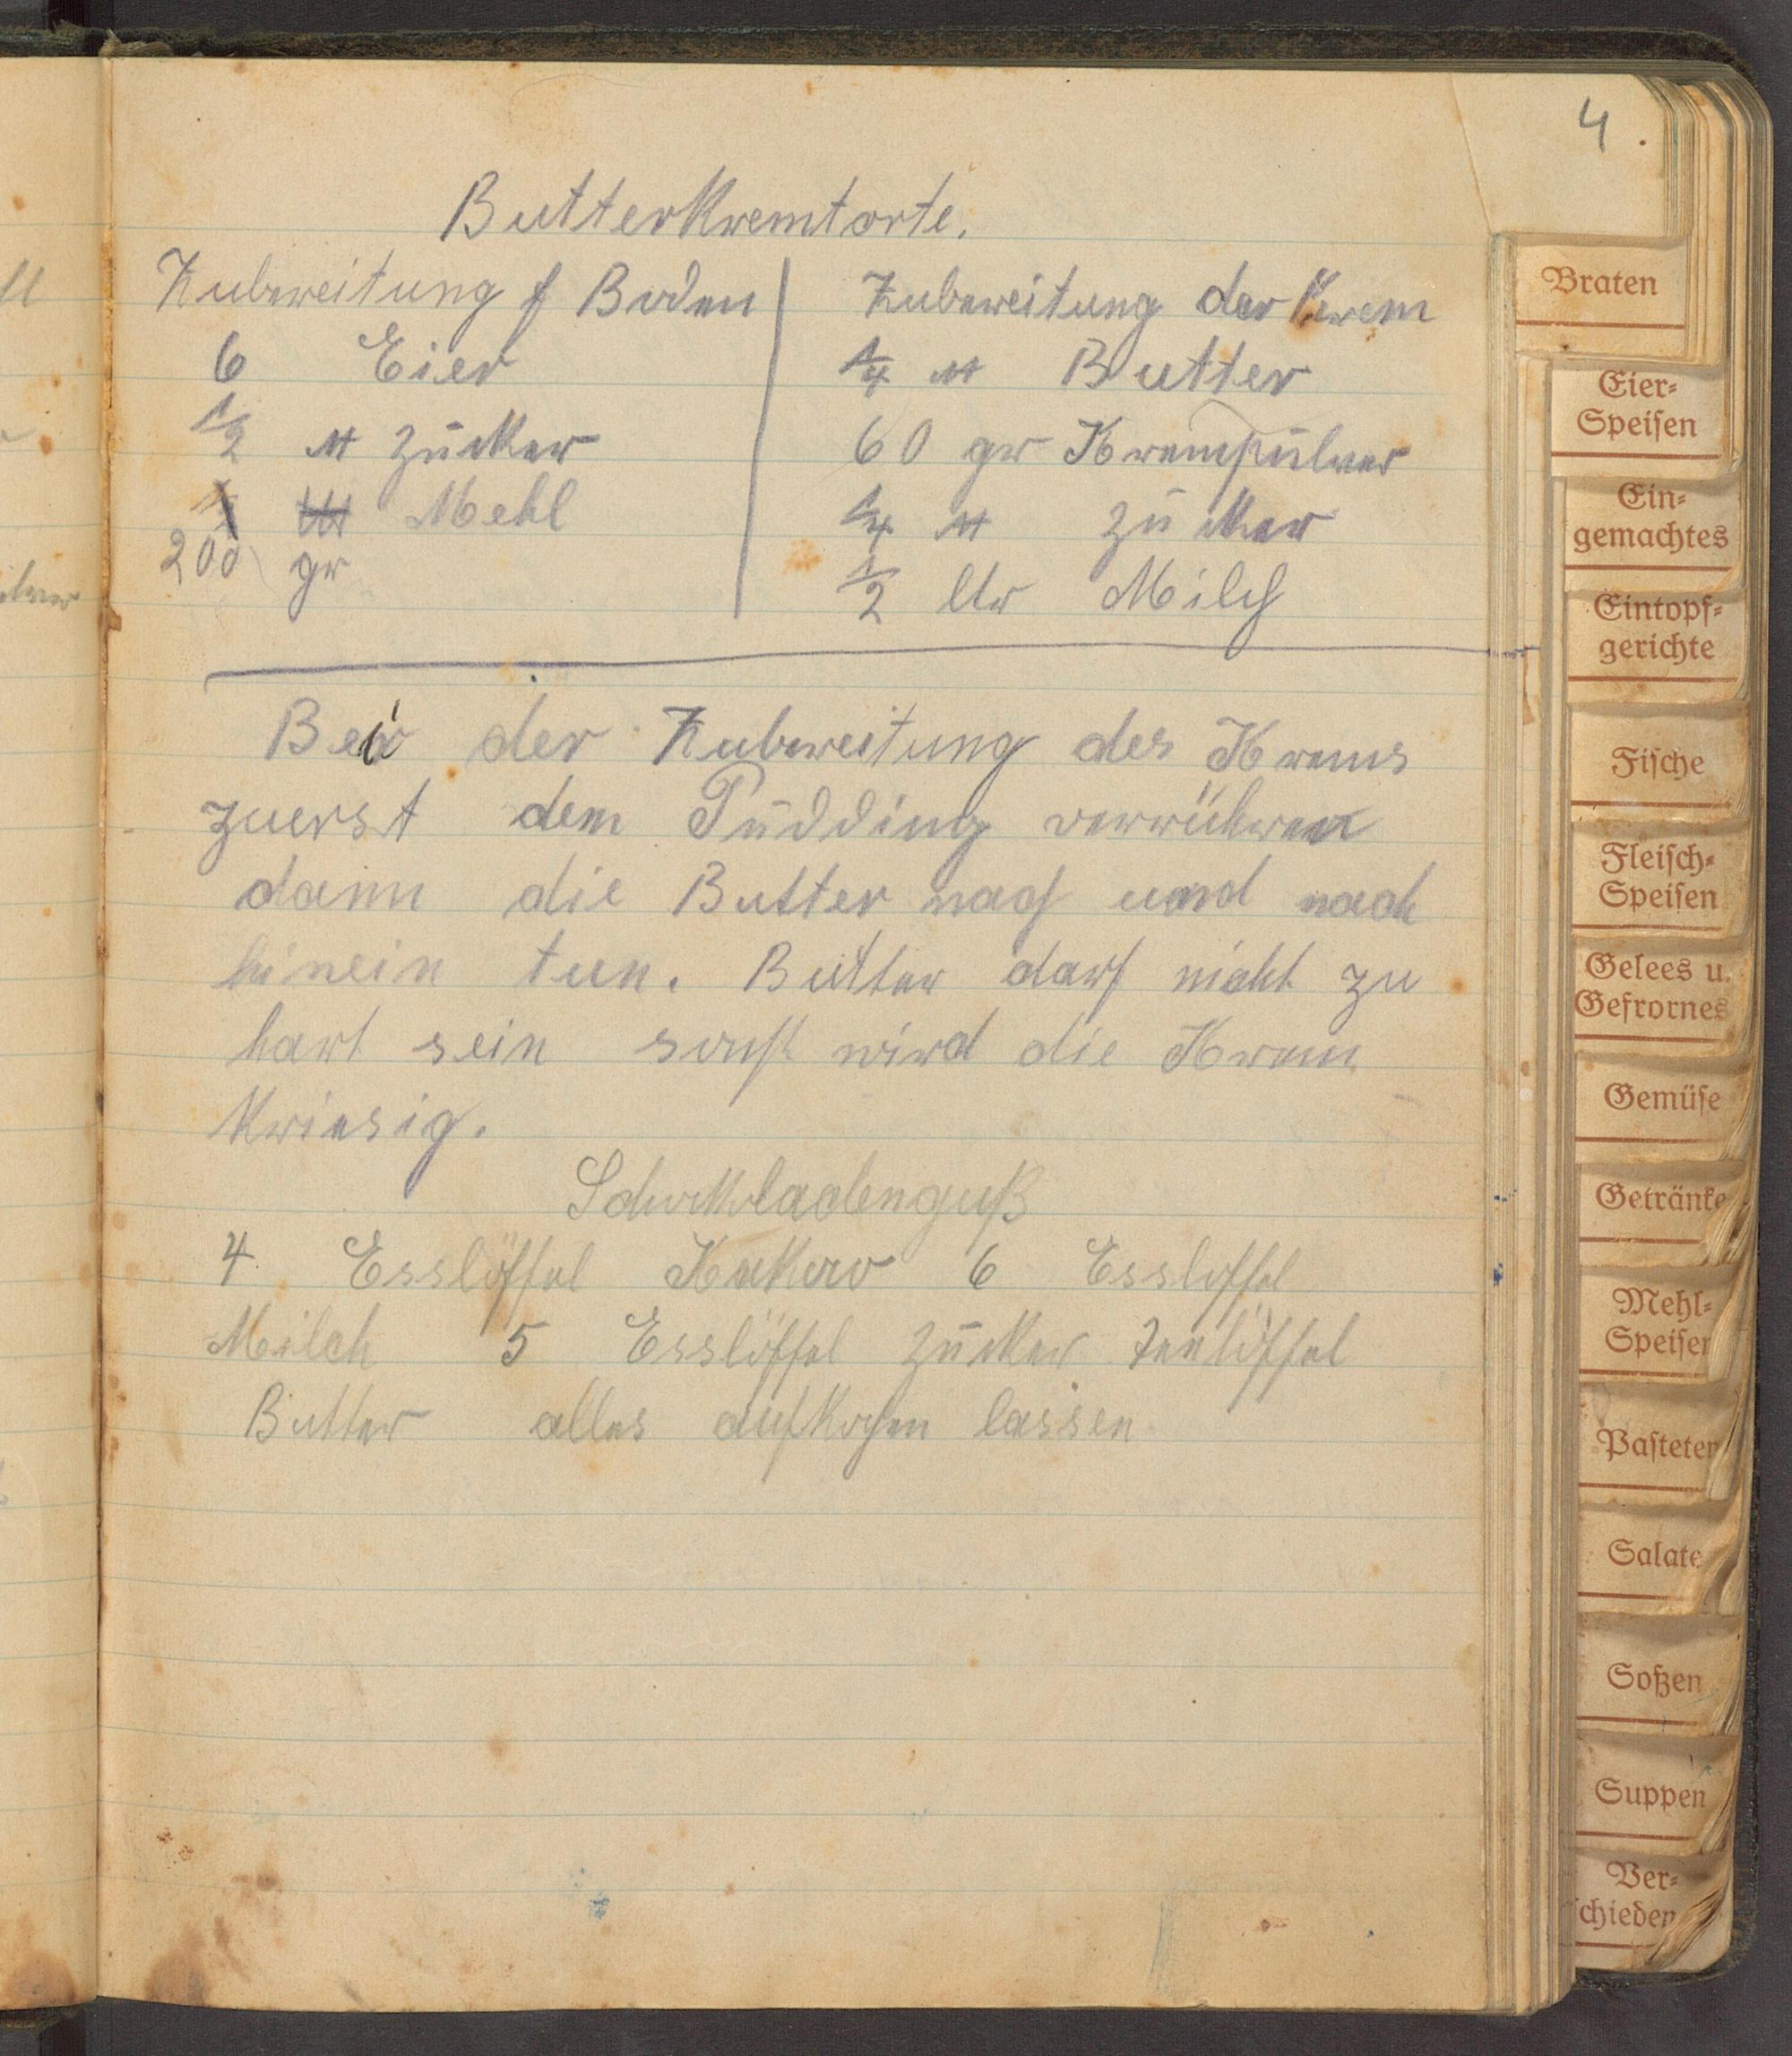 4.
Butterkremtorte.
Zubereitung f Boden
6 Eier
1/2 ℔ Zucker
200 gr Mehl
Zubereitung der Krem
1/4 ℔ Butter
60 gr Krempulver
1/4 ℔ Zucker
1/2 ltr Milch
Bei der Zubereitung des Krems
zuerst dem Pudding verrühren
dann die Butter nach und nach
hinein tun. Butter darf nicht zu
hart sein sonst wird die Krem
kriesig.
Schokoladenguß
4 Esslöffel Kakao 6 Essloffel
Milch 5 Esslöffel Zucker Teelöffel
Butter alles aufkochen lassen
Braten
Eier-
Speisen
Ein-
gemachtes
Eintopf-
gerichte
Fische
Fleisch-
Speisen
Gelees u.
Gefrornes
Gemüse
Getränke
Mehl-
Speisen
Pasteten
Salate
Soßen
Suppen
Ver-
schieden